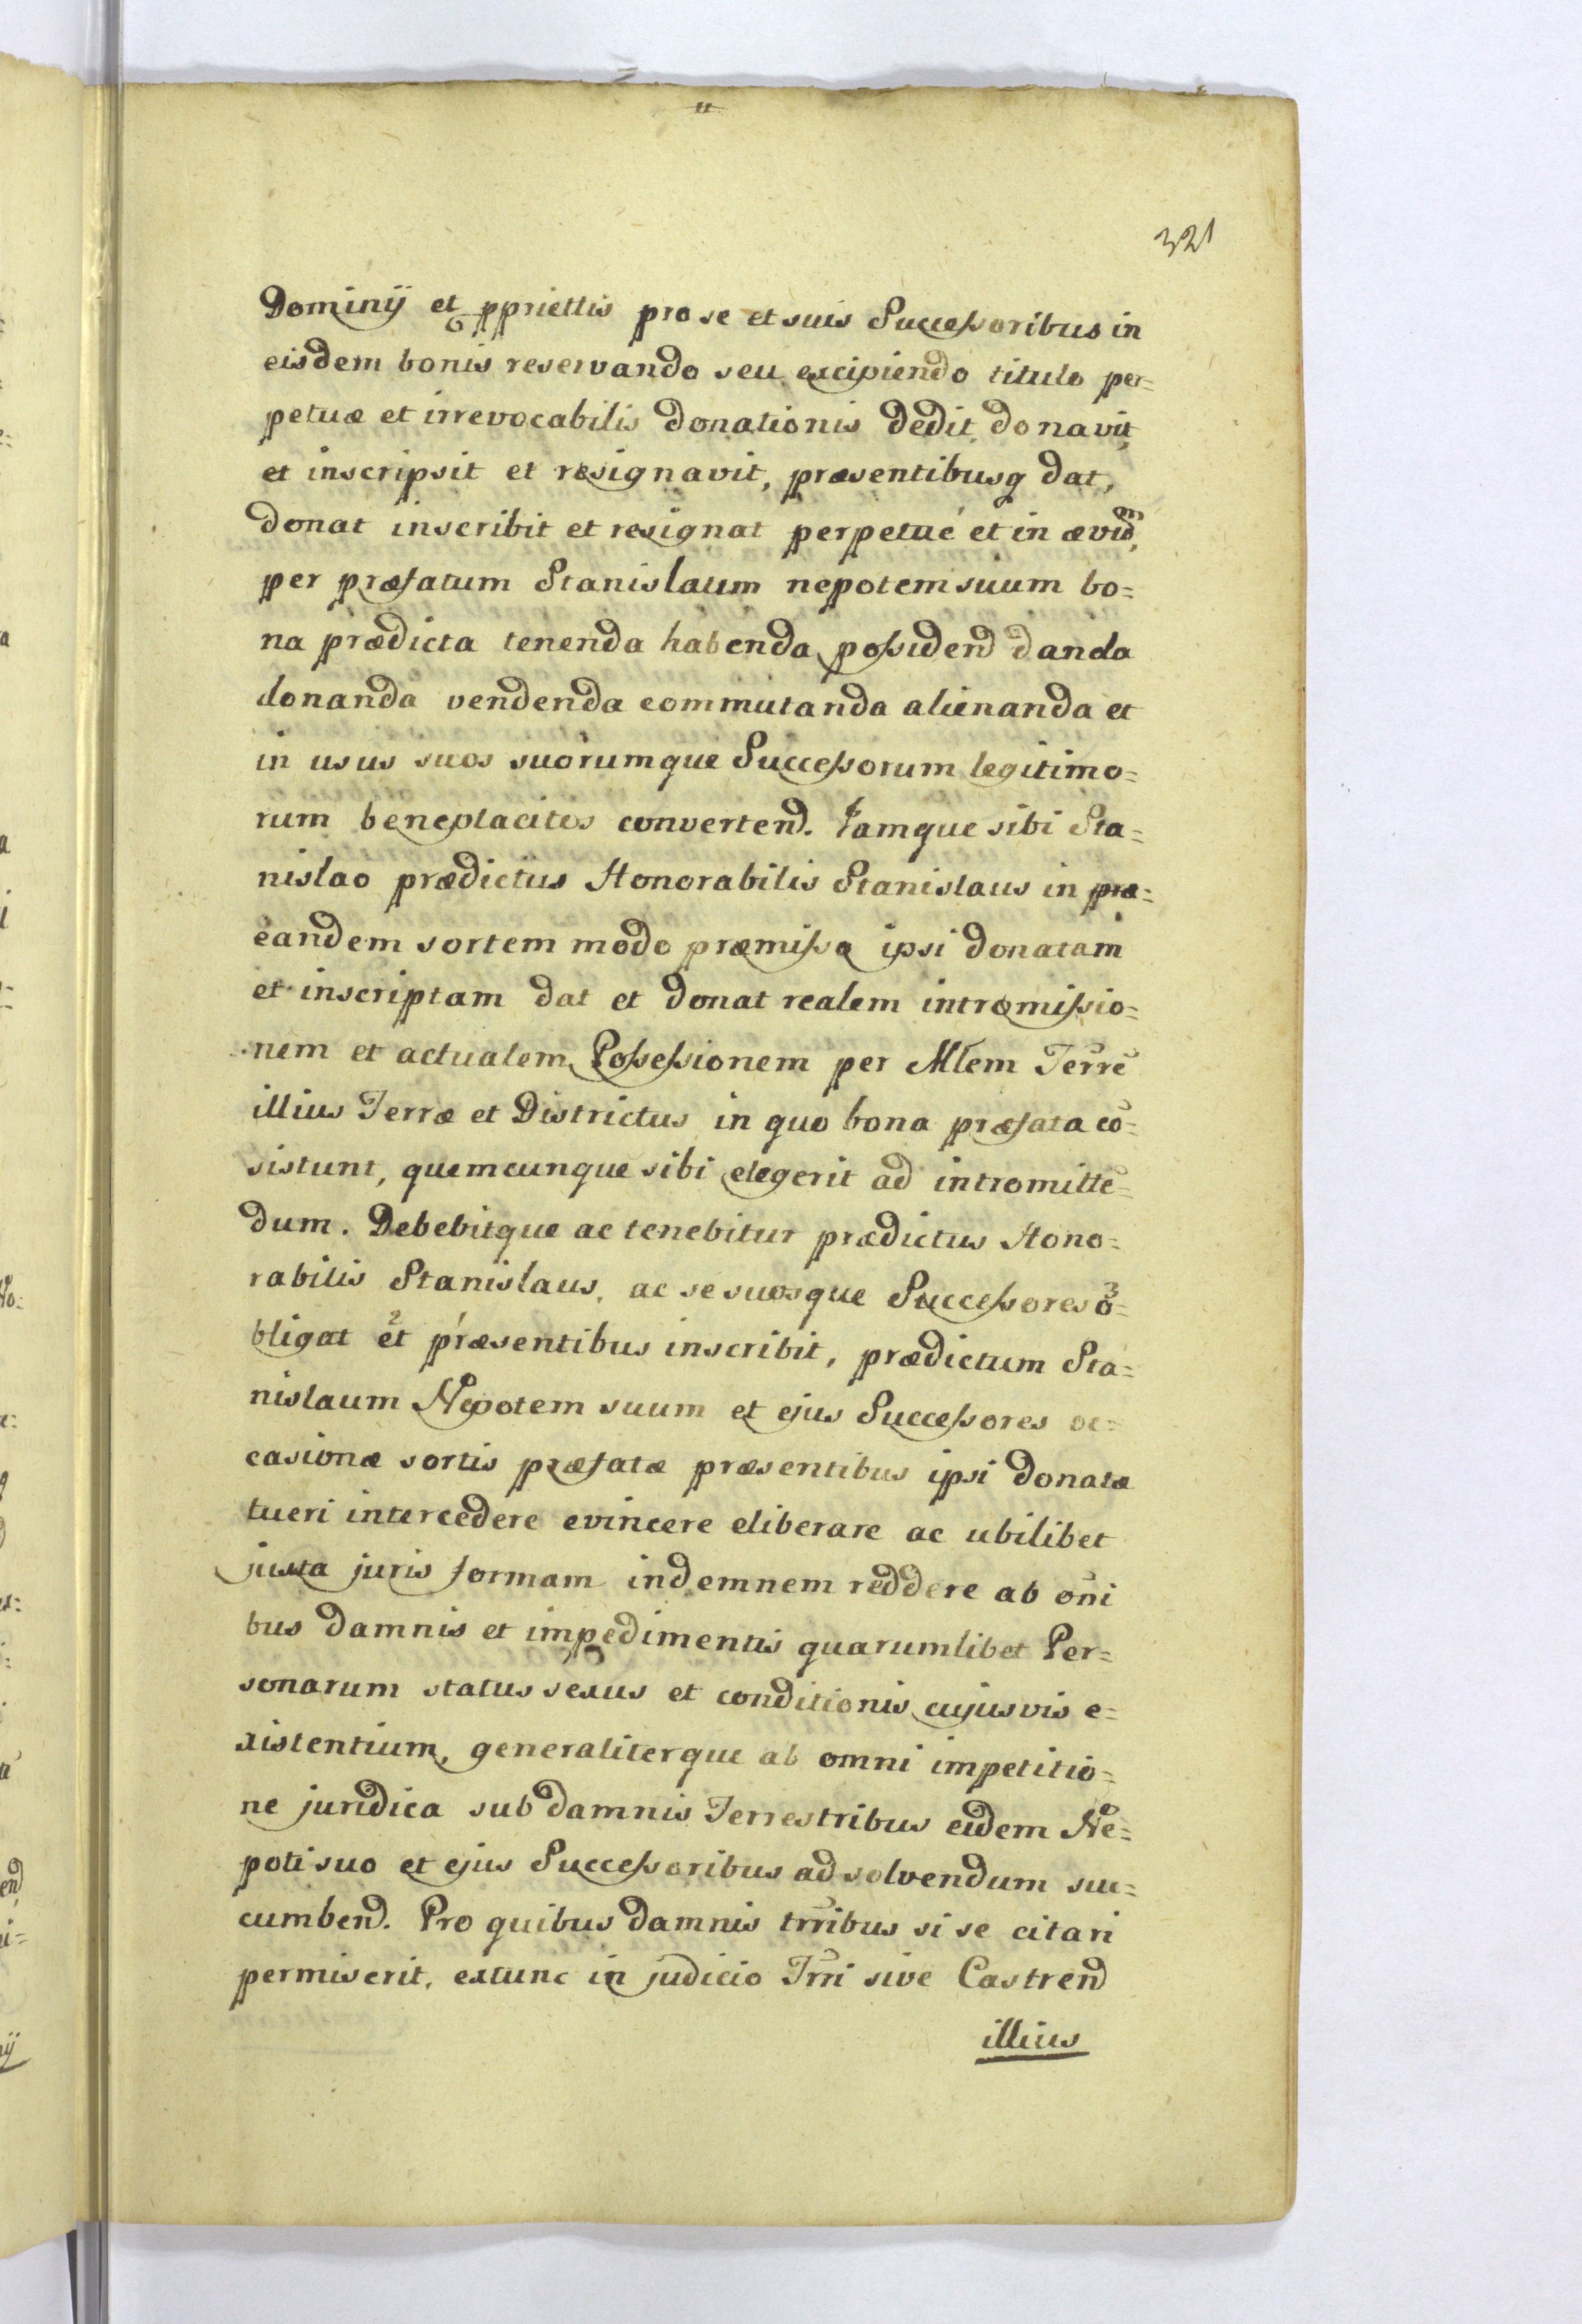 321
Dominij et ppriettis pro se et suis Successoribus in
eisdem bonis reservando seu excipiendo titulo per=
petuæ et irrevocabilis donationis dedit donavit,
et inscripsit et resignavit, præsentibusq dat,
donat inscribit et resignat perpetué et in ævum,
per præfatum Stanislaum nepotem suum bo=
na prædicta tenenda habenda possidend danda
donanda vendenda commutanda alienanda et
in usus suos suorumque Successorum legitimo=
rum beneplacitos convertend. Jamque sibi Sta=
nislao prædictus Honorabilis Stanislaus in præ=
eandem sortem modo præmisso ipsi donatam
et inscriptam dat et donat realem intromissio=
nem et actualem Possessionem per Mlem Terre
illius Terræ et Districtus in quo bona præfata cō=
sistunt, quemcunque sibi elegerit ad intromittē=
dum. Debebitque ac tenebitur prædictus Hono=
rabilis Stanislaus, ac se suosque Successores o=
bligat et præsentibus inscribit, prædictum Sta=
nislaum Nepotem suum et ejus Successores oc=
casionæ sortis præfatæ præsentibus ipsi donatæ
tueri intercedere evincere eliberare ac ubilibet
juxta juris formam indemnem reddere ab oni
bus damnis et impedimentis quarumlibet Per=
sonarum status sexus et conditionis cujusvis e=
xistentium, generaliterque ab omni impetitio=
ne juridica sub damnis Terrestribus eidem Ne=
poti suo et ejus Successoribus ad solvendum suc=
cumbend. Pro quibus damnis trribus si se citari
permiserit, extunc in judicio Trri sive Castrend
illius